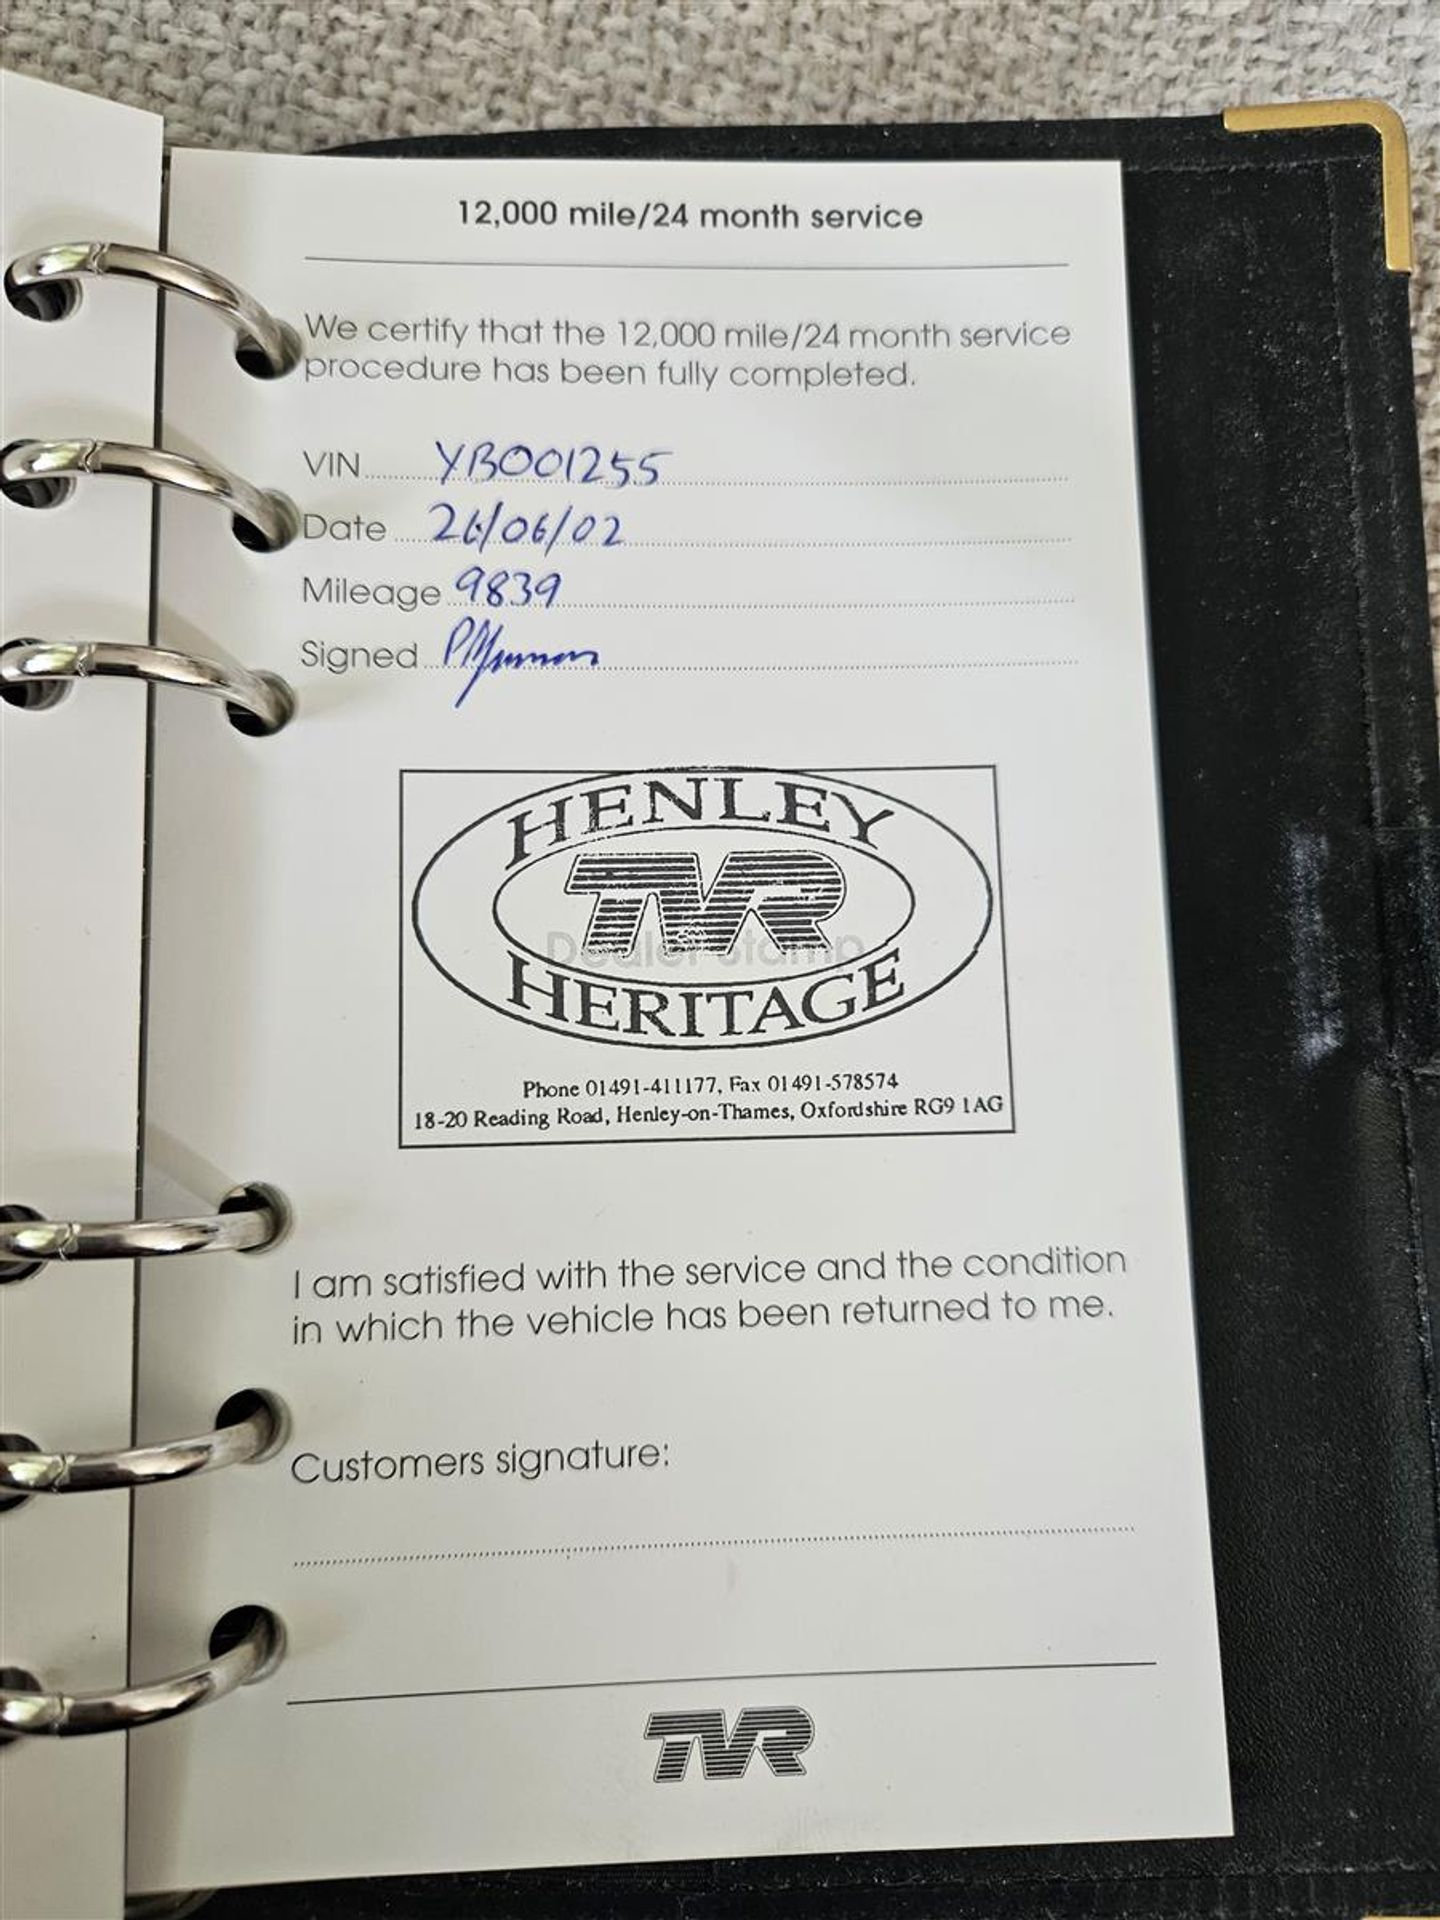 12,000 mile/24 month service
We certify that the 12,000 mile/24 month service
procedure has been fully completed.
VIN YB001255
Date 26/06/02
Mileage 9839
Signed
HENLEY
TVR
Dealer Stamp
HERITAGE
Phone 01491-411177, Fax 01491-578574
18-20 Reading Road, Henley-on-Thames, Oxfordshire RG9 1AG
I am satisfied with the service and the condition
in which the vehicle has been returned to me.
Customers signature:
TVR